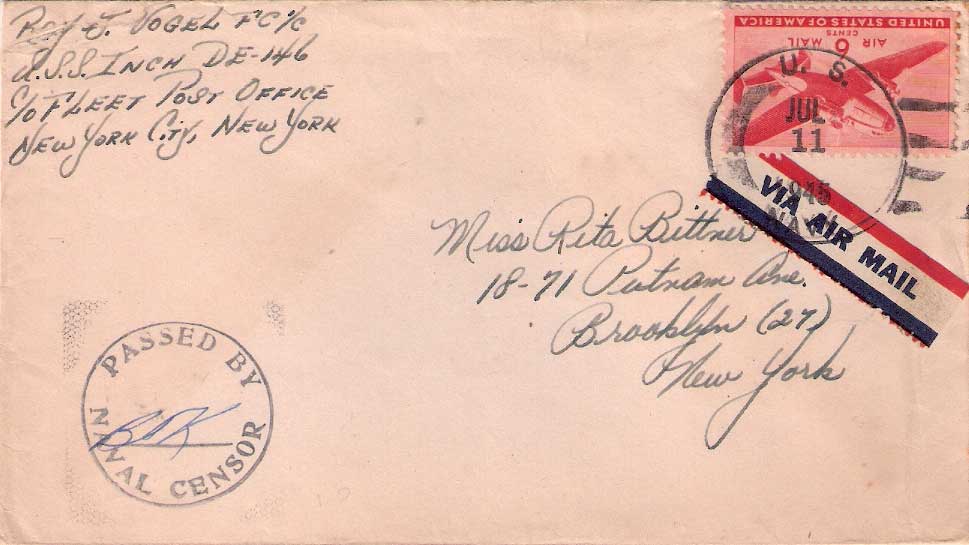 Ray J. VOGEL FC 1/c
U.S.S. INCH DE-146
C/O FLEET POST OFFICE
NEW YORK CITY, NEW YORK
UNITED STATES OF AMERICA
AIR MAIL
6
CENTS
U. S.
JUL
11
1945
NAVY
VIA AIR MAIL
Miss Rita Bittner
18-71 Putnam Ave.
Brooklyn (27)
New York
PASSED BY
NAVAL CENSOR